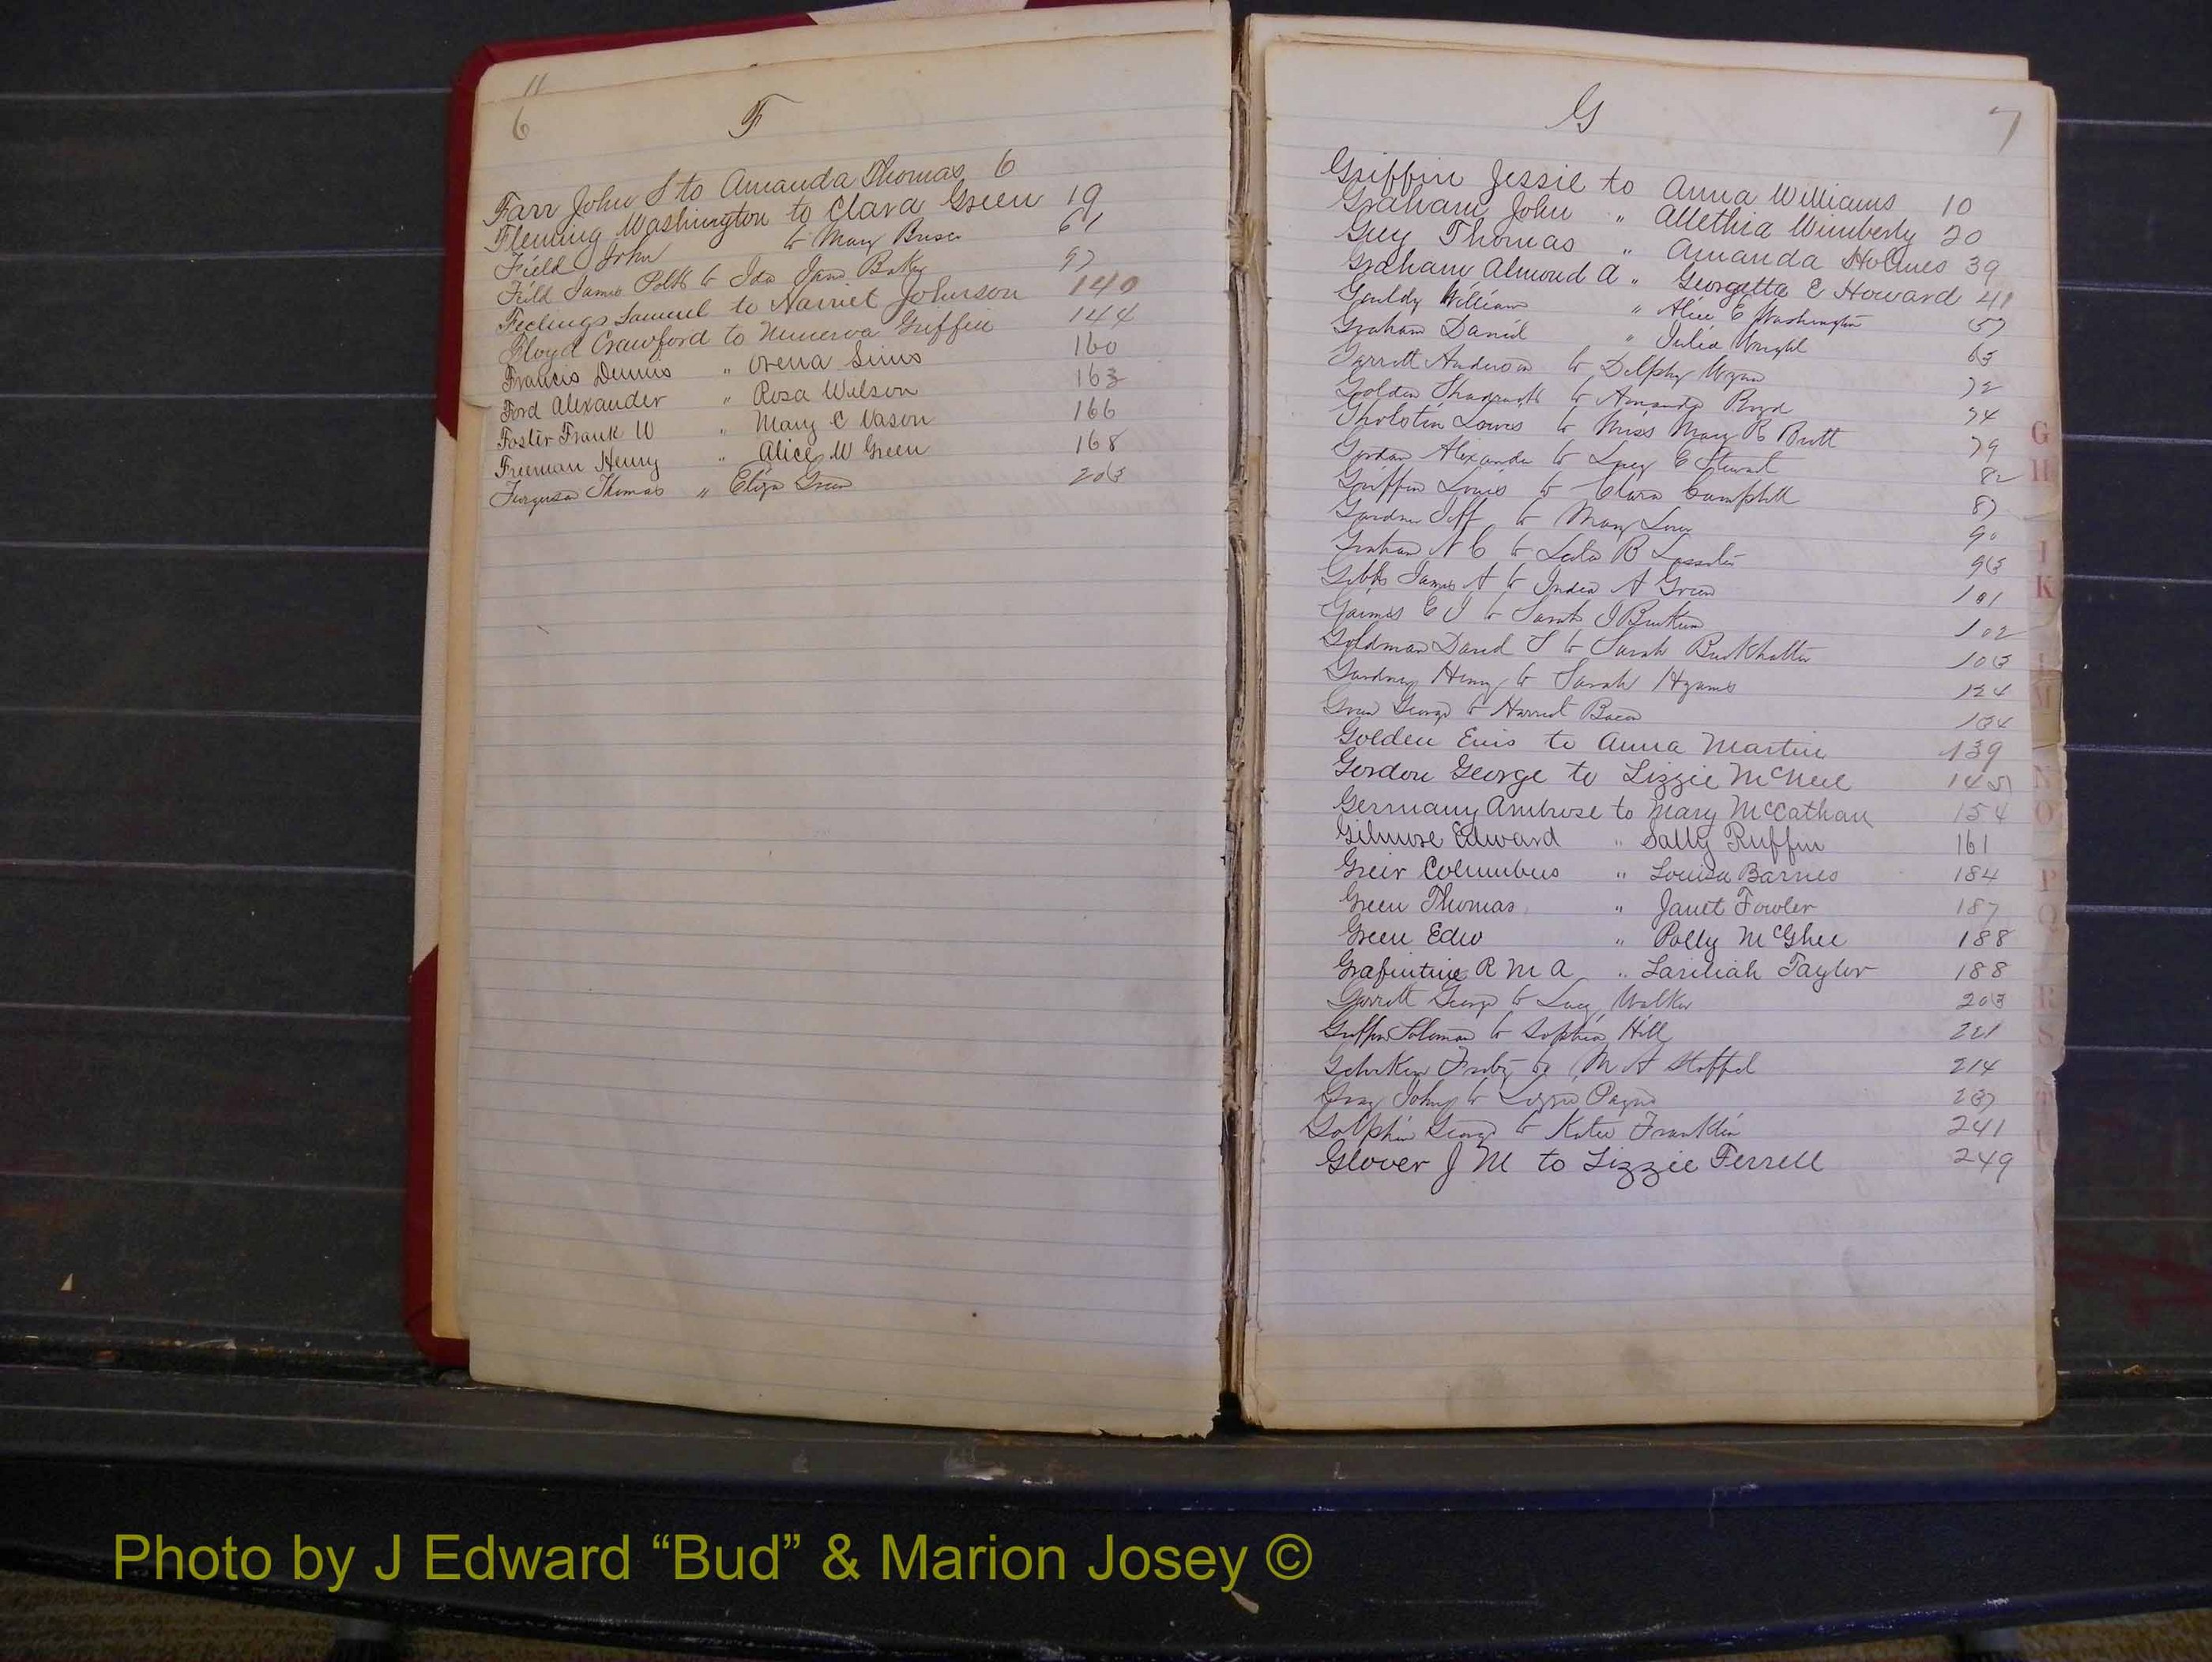 11
6
F
Farr John S to Amanda Thomas 6
Fleming Washington to Clara Green 19
Field John to Mary 61
Field James Polk to Ida Jane Baker 97
Feelings Samuel to Harriet Johnson 140
Floyd Crawford to Minerva Griffin 144
Francis Dennis " Orena Sims 160
Ford Alexander " Rosa Wilson 163
Foster Frank W " Mary C Vason 166
Freeman Henry " Alice W Green 168
Furguson Thomas " Eliza Green 203
G
7
Griffin Jessie to Anna Williams 10
Graham John " Allethia Wimberly 20
Guy Thomas " Amanda Holmes 39
Graham Almond A " Georgetta E Howard 41
Gouldy William " Alice E Washington 57
Graham David " Julia Wright 63
Garrett Anderson to Delphy 72
Golden Shadrach to Amanda Boyd 74
Gholston Lewis to Miss Mary R Britt 79
Gordon Alexander to Lucy E Stewart 82
Griffin Louis to Clara Campbell 87
Gardner Jeff to Mary 90
Graham N C to Lula B Lassiter 93
Gibbs James A to India A Green 101
Gaines E J to Sarah J 102
Goldman David S to Sarah Burkhalter 103
Gardner Henry to Sarah Hyams 124
Green George to Harriet Bacon 134
Golden Enis to Anna Martin 139
Gordon George to Lizzie McNeil 145
Germany Ambrose to Mary McCathan 154
Gilmore Edward " Sally Ruffin 161
Greir Columbus " Louisa Barnes 184
Green Thomas " Janet Fowler 187
Green Edw " Polly McGhee 188
R M A " Taylor 188
Garrett George to Lucy Walker 203
Griffin Soloman to Sophia Hill 221
to M A Stoffel 214
Gray John to Lizzie Payne 237
Golphin George to Katie Franklin 241
Glover J M to Lizzie Ferrell 249
G
H
I
K
L
M
N
O
P
Q
R
S
T
U
Photo by J Edward “Bud” & Marion Josey ©